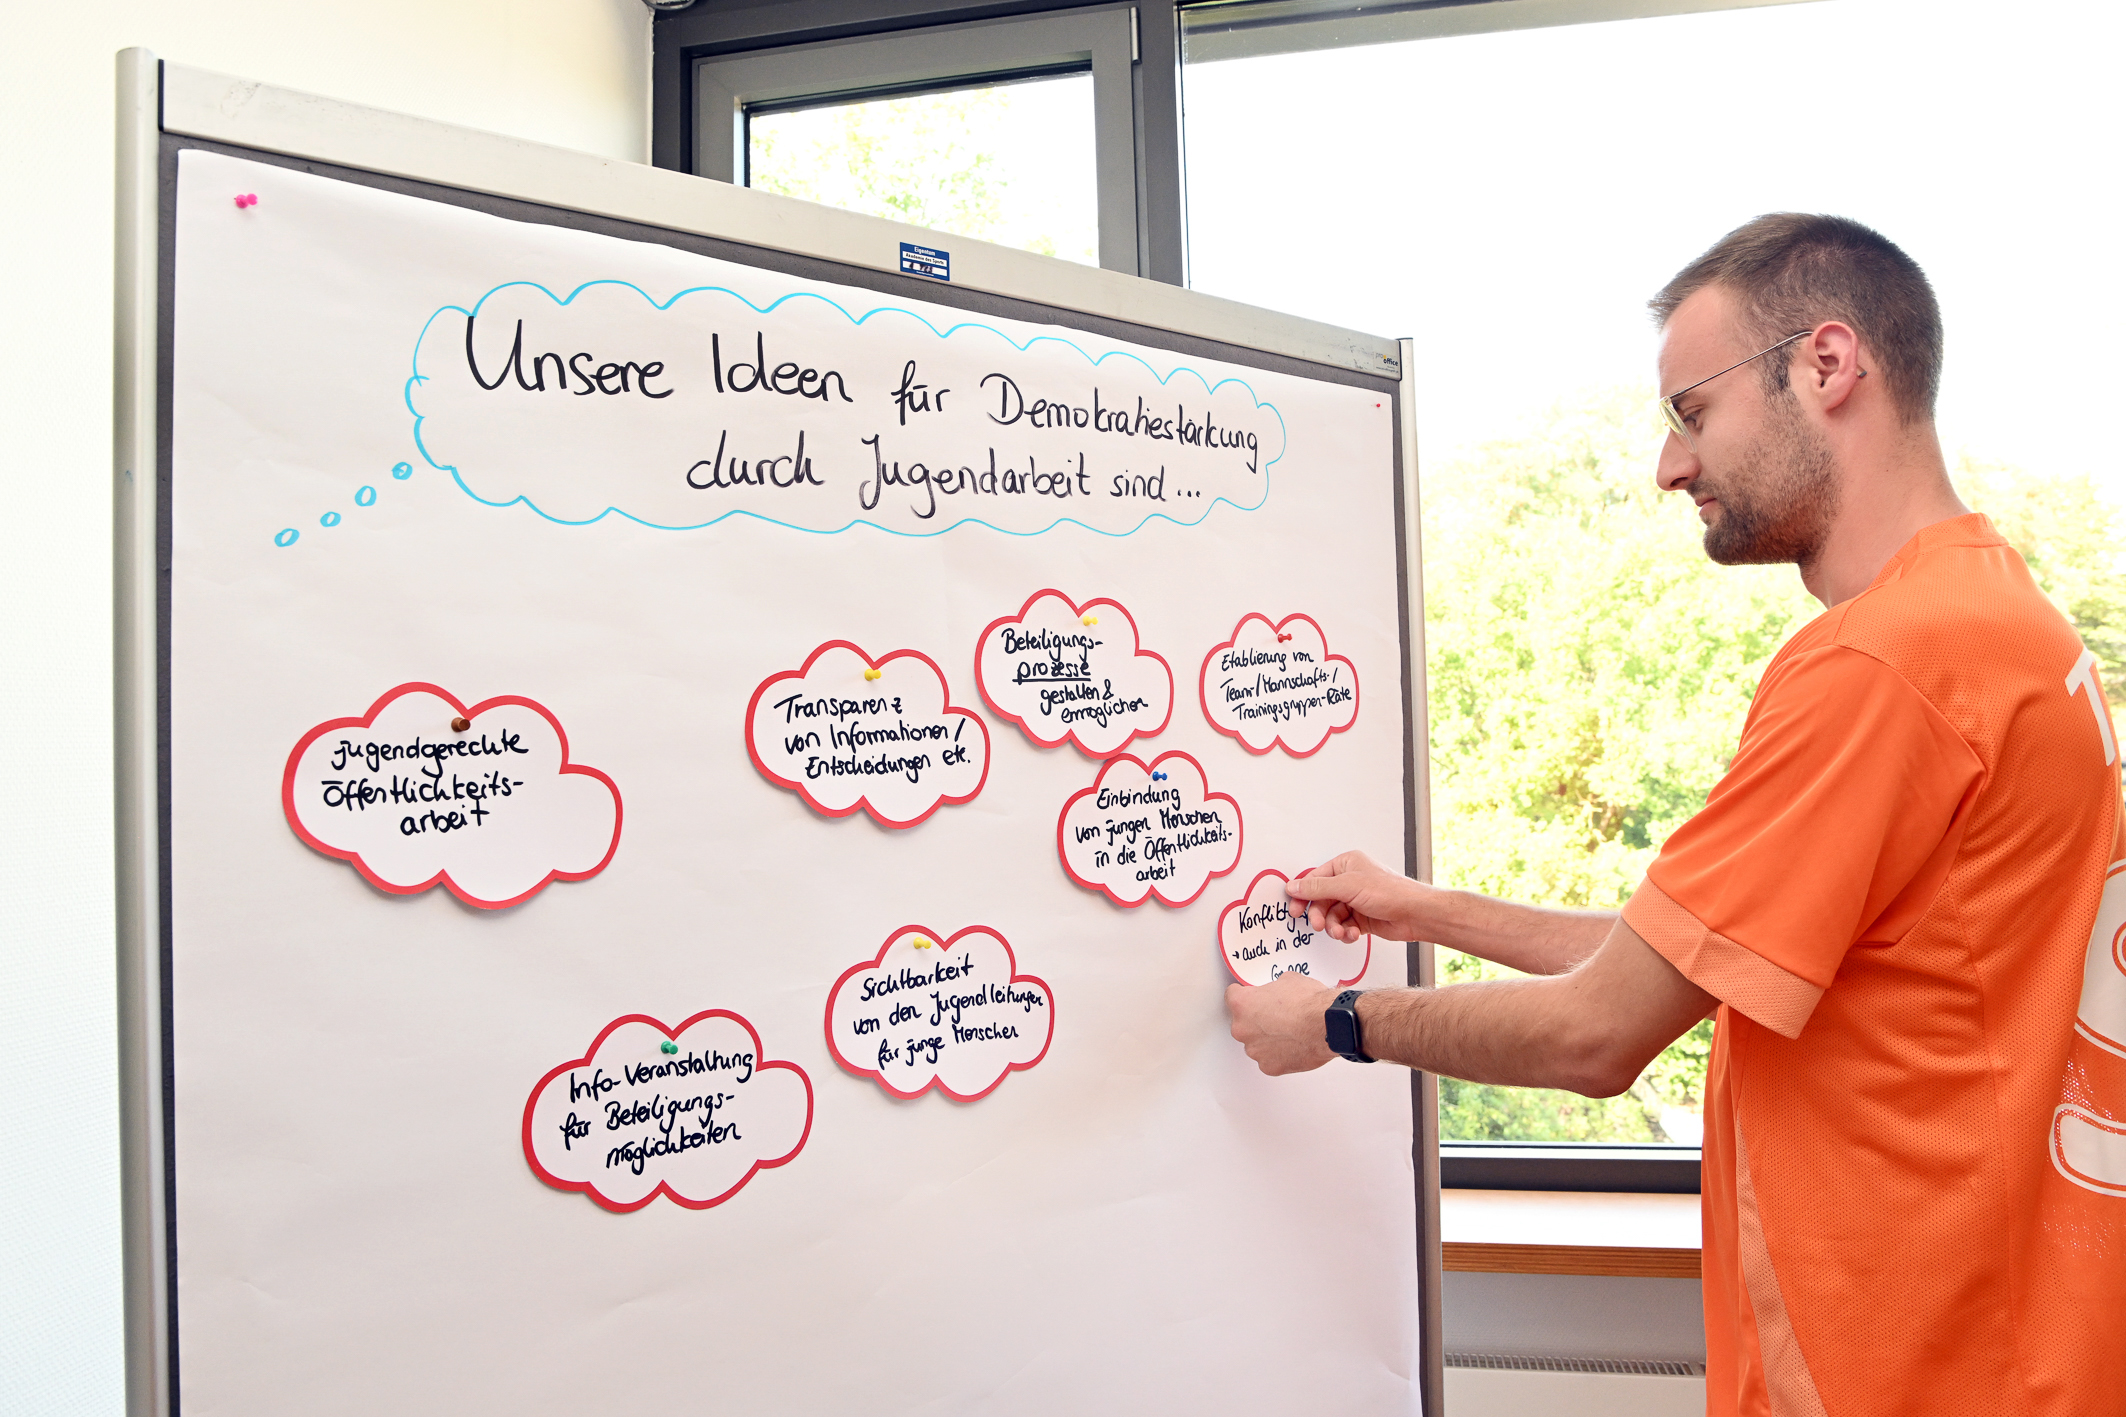 Eigentum
Akademie des Sports
office
Unsere Ideen für Demokratiestärkung
durch Jugendarbeit sind...
jugendgerechte
Öffentlichkeits-
arbeit
Transparenz
von Informationen/
Entscheidungen etc.
Beteiligungs-
prozesse
gestalten &
ermöglichen
Etablierung von
Team-/Mannschafts-/
Trainingsgruppen-Räte
Einbindung
von jungen Menschen
in die Öffentlichkeits-
arbeit
→ auch in der
Gruppe
Sichtbarkeit
von den Jugendleitungen
für junge Menschen
Info-Veranstaltung
für Beteiligungs-
möglichkeiten
T